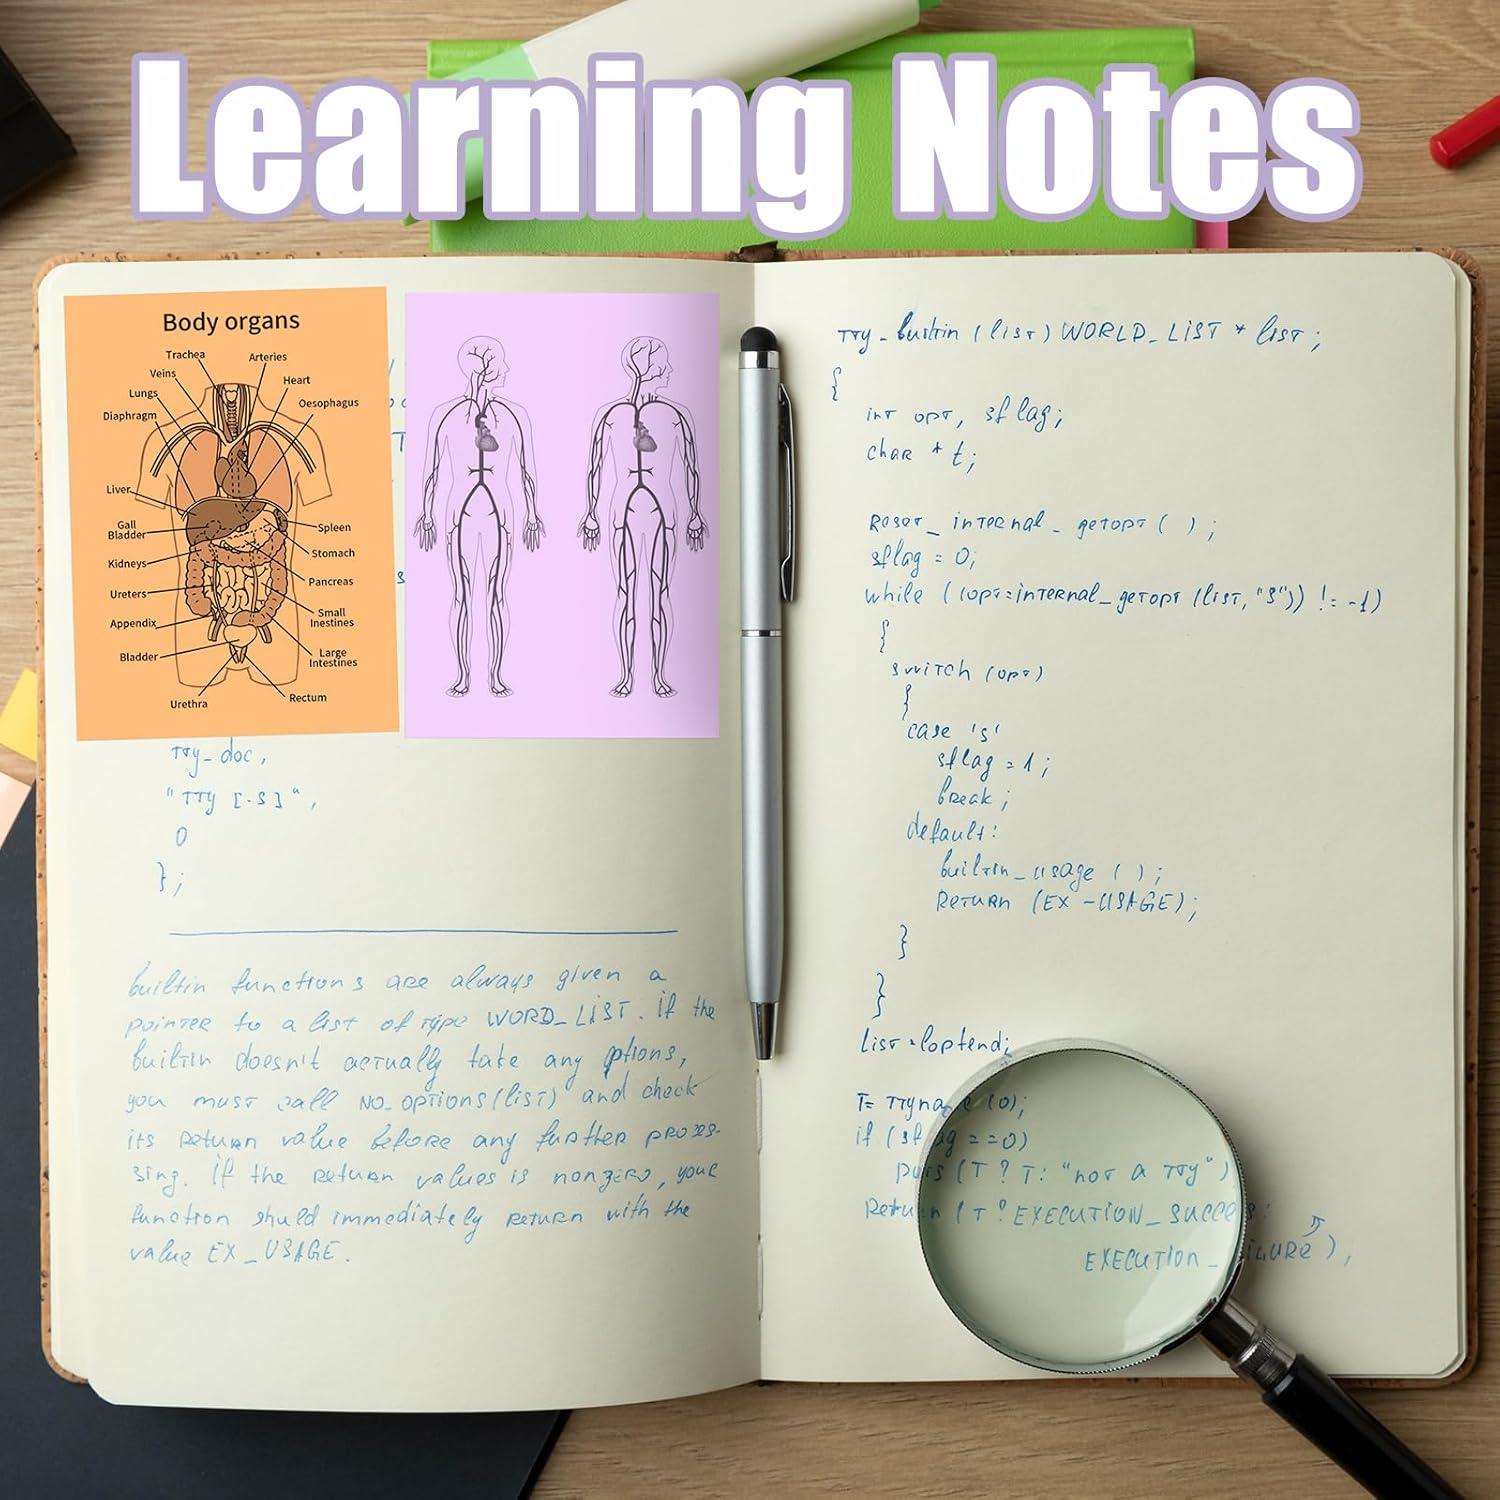 Learning Notes
Body organs
Trachea
Arteries
Veins
Heart
Lungs
Oesophagus
Diaphragm
Liver
Gall
Bladder
Spleen
Kidneys
Stomach
Ureters
Pancreas
Appendix
Small
Inestines
Bladder
Large
Intestines
Urethra
Rectum
tty_doc,
"TTY [-S]",
0
};
builtin functions are always given a
pointer to a list of type WORD_LIST. if the
builtin doesn't actually take any options,
you must call no_options(list) and check
its return value before any further proces-
sing. if the return values is nonzero, your
function shuld immediately return with the
value EX_USAGE.
tty_builtin (list) WORLD_LIST * list;
{
int opt, sflag;
char * t;
Reset_internal_getopt ( );
sflag = 0;
while ((opt=internal_getopt (list, "S")) != -1)
{
switch (opt)
{
case 's'
sflag = 1;
break;
default:
builtin_usage ( );
Return (EX -USAGE);
}
}
list = loptend;
T= ttyname (0);
if (sflag ==0)
puts (T ? T: "not a tty")
Return (T ? EXECUTION_SUCCESS:
EXECUTION_FAILURE),